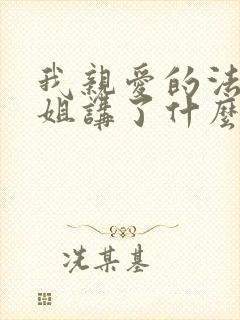 我親愛的法
姐講了什麼
冼某基